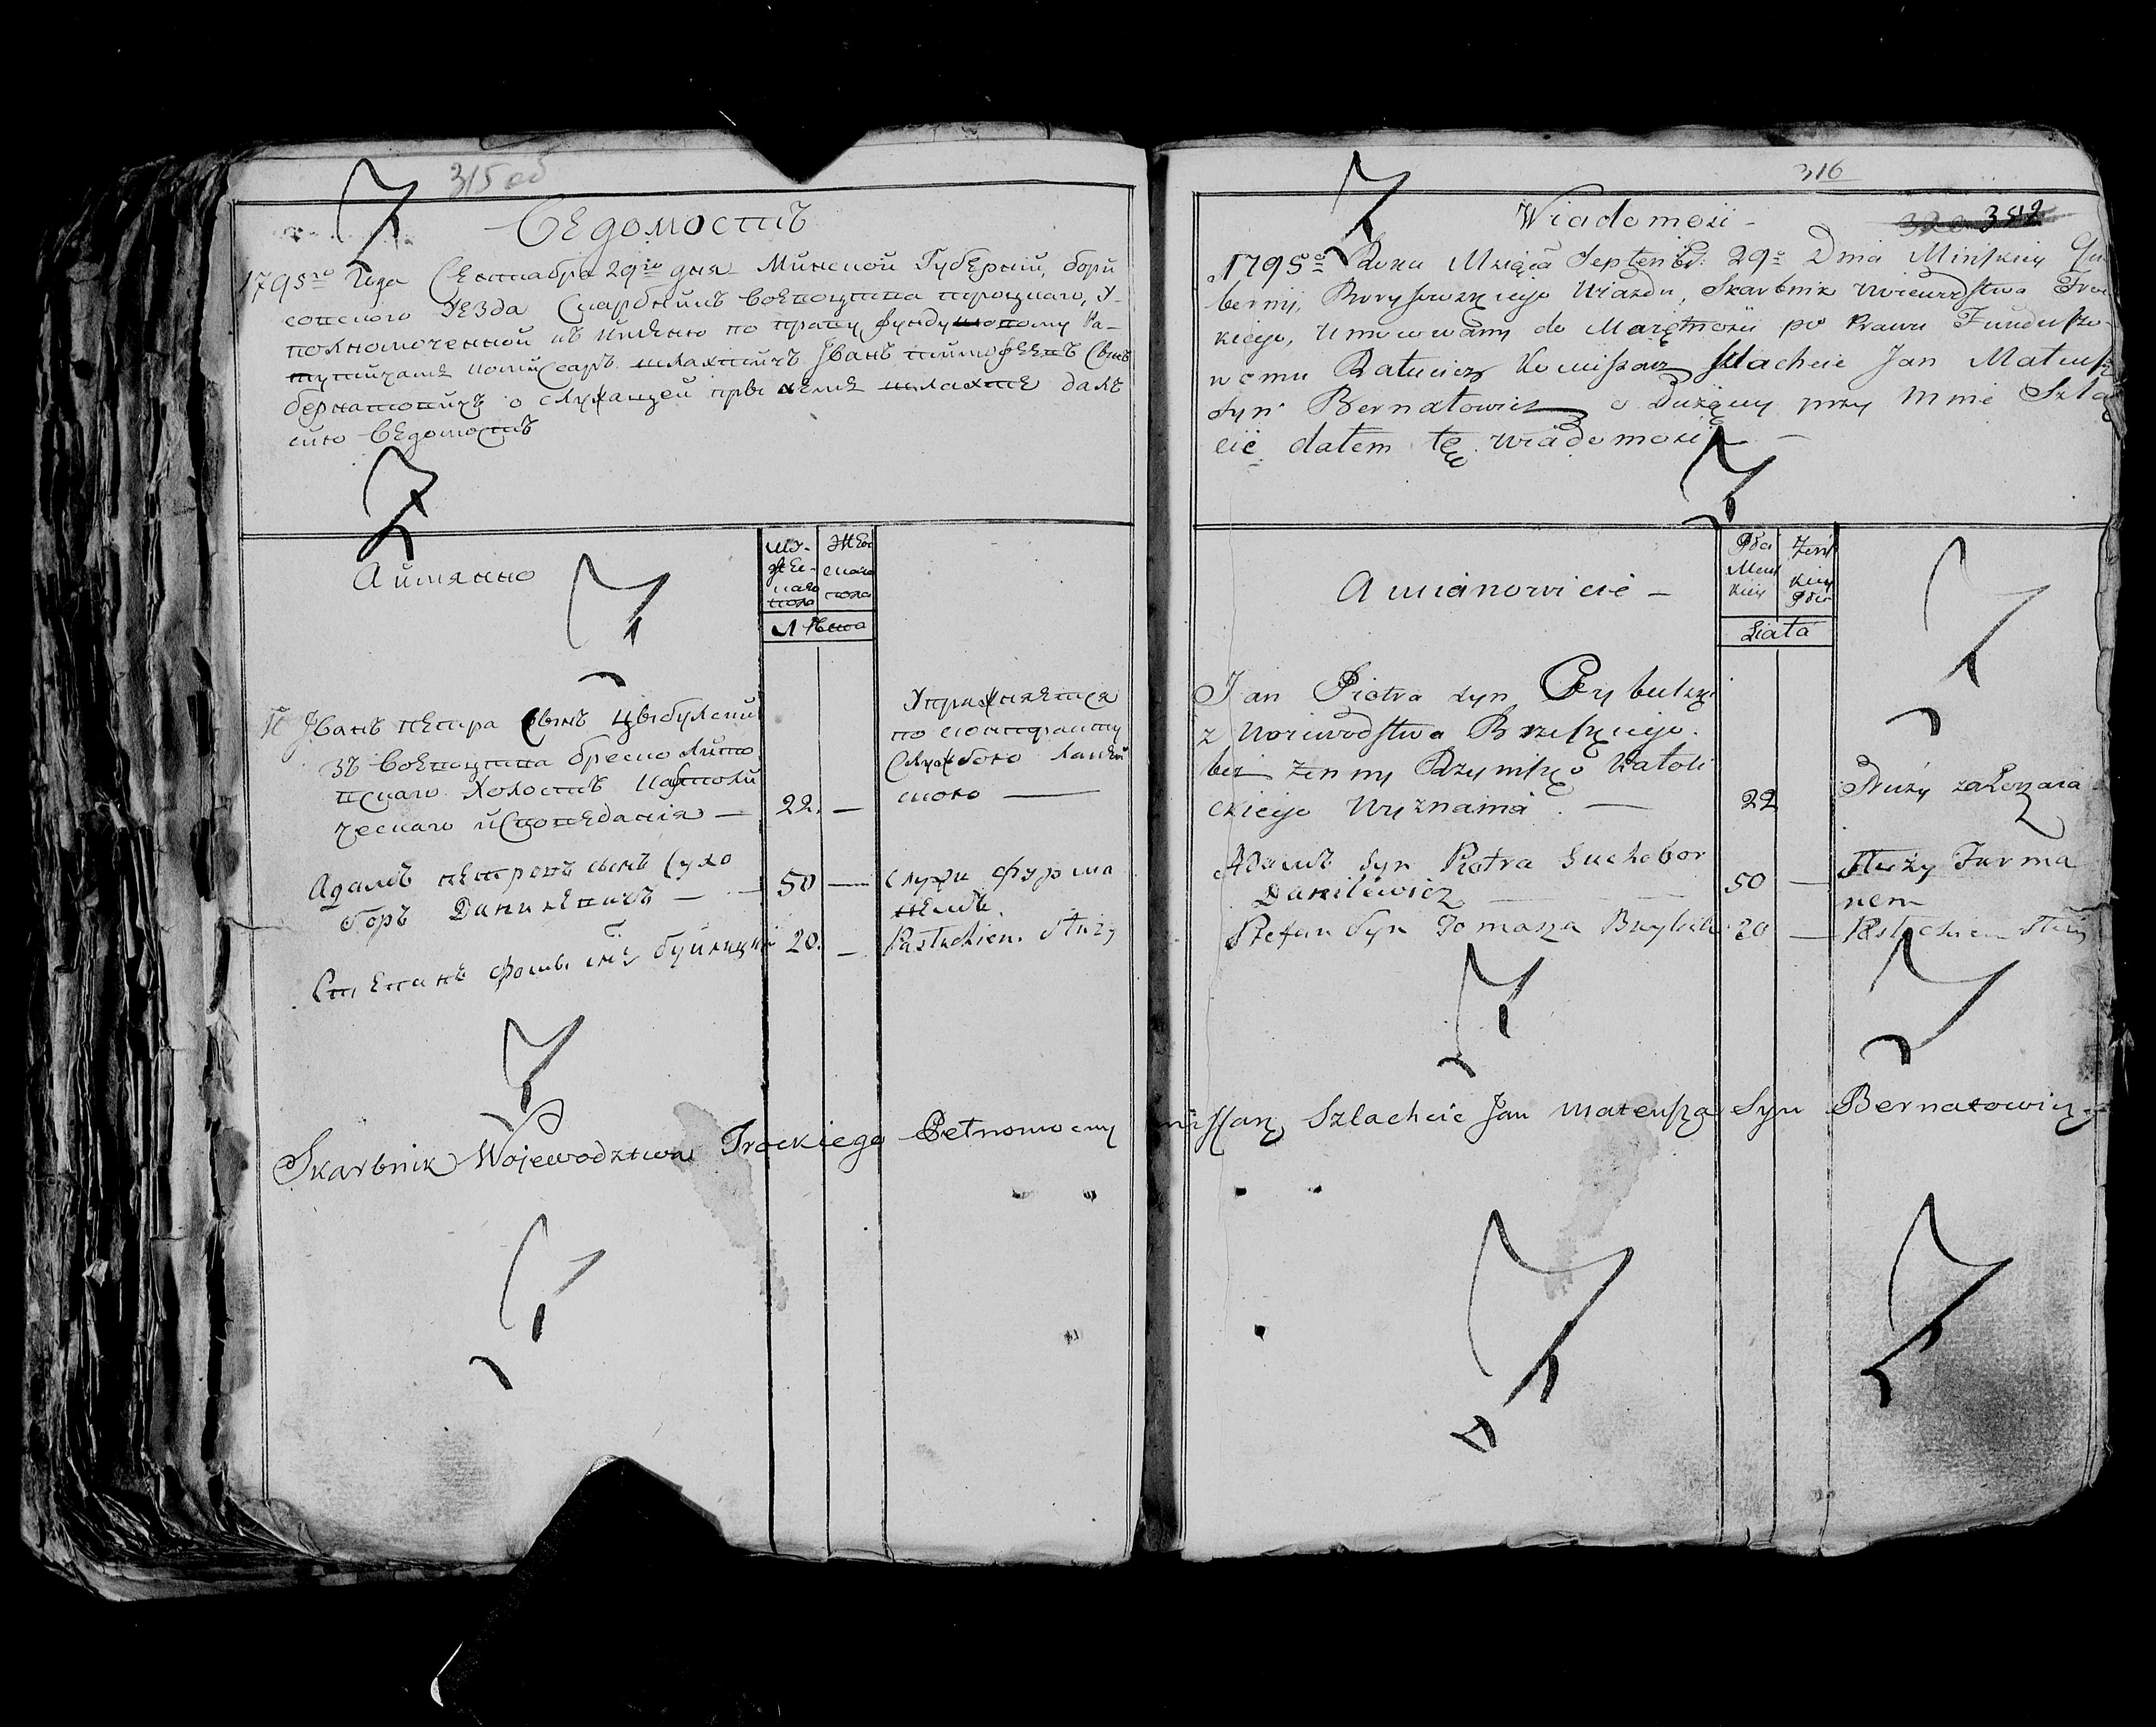 315 об
Ведомость
1795го Года Сентабра 29го дня Минской Губерний, бори
совского Уезда Скарбникъ воевоцтва троцкаго, У-
полномоченной къ имѣнію по праву фундушовому Ра-
тутичамъ комисаръ шляхтичъ Іванъ
бернатовичъ о служащей при мнѣ шляхте далъ
сию Ведомость
А имянно
Му-
жес-
каго
пола
Жен
скаго
пола
Лѣта
Іванъ петра сынъ Цыбулский
зъ воевоцтва бреско лито
вскаго Холостъ католи
ческаго исповеданія —
22. —
Упражняется
по контракту
службою лакей
скою —
Адамъ петровъ сынъ Сухо
боръ Данилевичъ —
50 —
служи фурма
немъ
Степанъ фомы снъ буйницкий
20. —
Pastuchiem Służy
Skarbnik Województwa Trockiego Pełnomocny
316
Wiadomość
342
1795o Roku Msiąca Septembr: 29o Dnia Minskiey Gu
bernij, Borysowskiego Ujazdu, Skarbnik Woiewodstwa Troc
kiego, Umocowany do Maiętności po Prawu Funduszo-
wemu Ratuticz Komisarz Szlachcic Jan Mateusz
Syn Bernatowicz o Służącey przy Mnie Szlach
cie dałem tę wiadomość —
A mianowicie —
Płci
Męs
kiey
Żeńs
kiey
Płci
Liata
Jan Piotra syn Cybulski
z Woiewodstwa Brzeskiego.
bez Żenny Rzymsko Katoli
ckiego Wyznania —
22
Służy za Lokaia
Adam Syn Piotra Suchobor
Danilewicz —
50 —
Służy Furma
nem
Stefan Syn Tomasza
20 —
Pastuchiem Służy
missarz Szlachcic Jan Mateusza Syn Bernatowicz